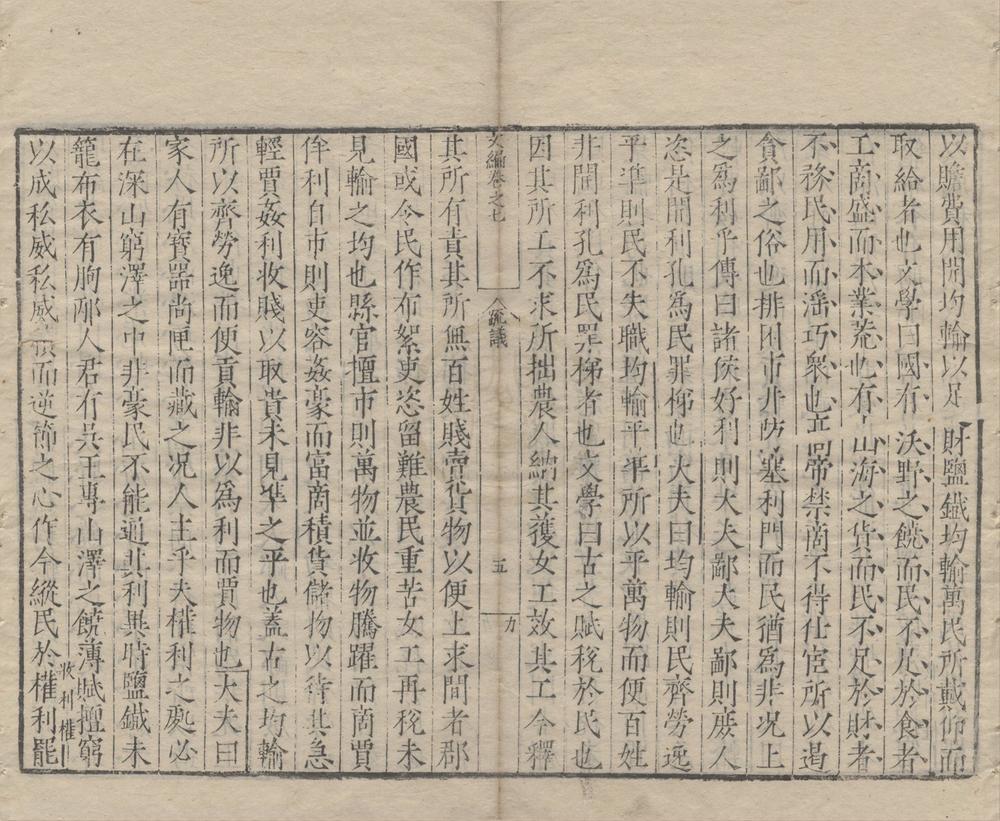 以贍費用開均輸以足財鹽鐵均輸萬民所戴仰而
取給者也文學曰國有沃野之饒而民不足於食者
工商盛而本業荒也有山海之貨而民不足於財者
不務民用而淫巧衆也高帝禁商不得仕宦所以遏
貪鄙之俗也排困市井防塞利門而民猶爲非况上
之爲利乎傳曰諸侯好利則大夫鄙大夫鄙則庶人
恣是開利孔爲民罪梯也大夫曰均輸則民齊勞逸
平準則民不失職均輸平準所以平萬物而便百姓
非開利孔爲民罪梯者也文學曰古之賦稅於民也
因其所工不求所拙農人納其獲女工效其工今釋
文編卷之七
疏議
五
其所有責其所無百姓賤賣貨物以便上求間者郡
國或令民作布絮吏恣留難農民重苦女工再稅未
見輸之均也縣官擅市則萬物並收物騰躍而商賈
侔利自市則吏容姦豪而富商積貨儲物以待其急
輕賈姦利收賤以取貴未見準之平也蓋古之均輸
所以齊勞逸而便貢輸非以爲利而賈物也大夫曰
家人有寶器尚匣而藏之况人主乎夫權利之處必
在深山窮澤之中非豪民不能通其利異時鹽鐵未
籠布衣有朐邴人君有吳王專山澤之饒薄賦擅窮
收利權
以成私威私威積而逆節之心作今縱民於權利罷